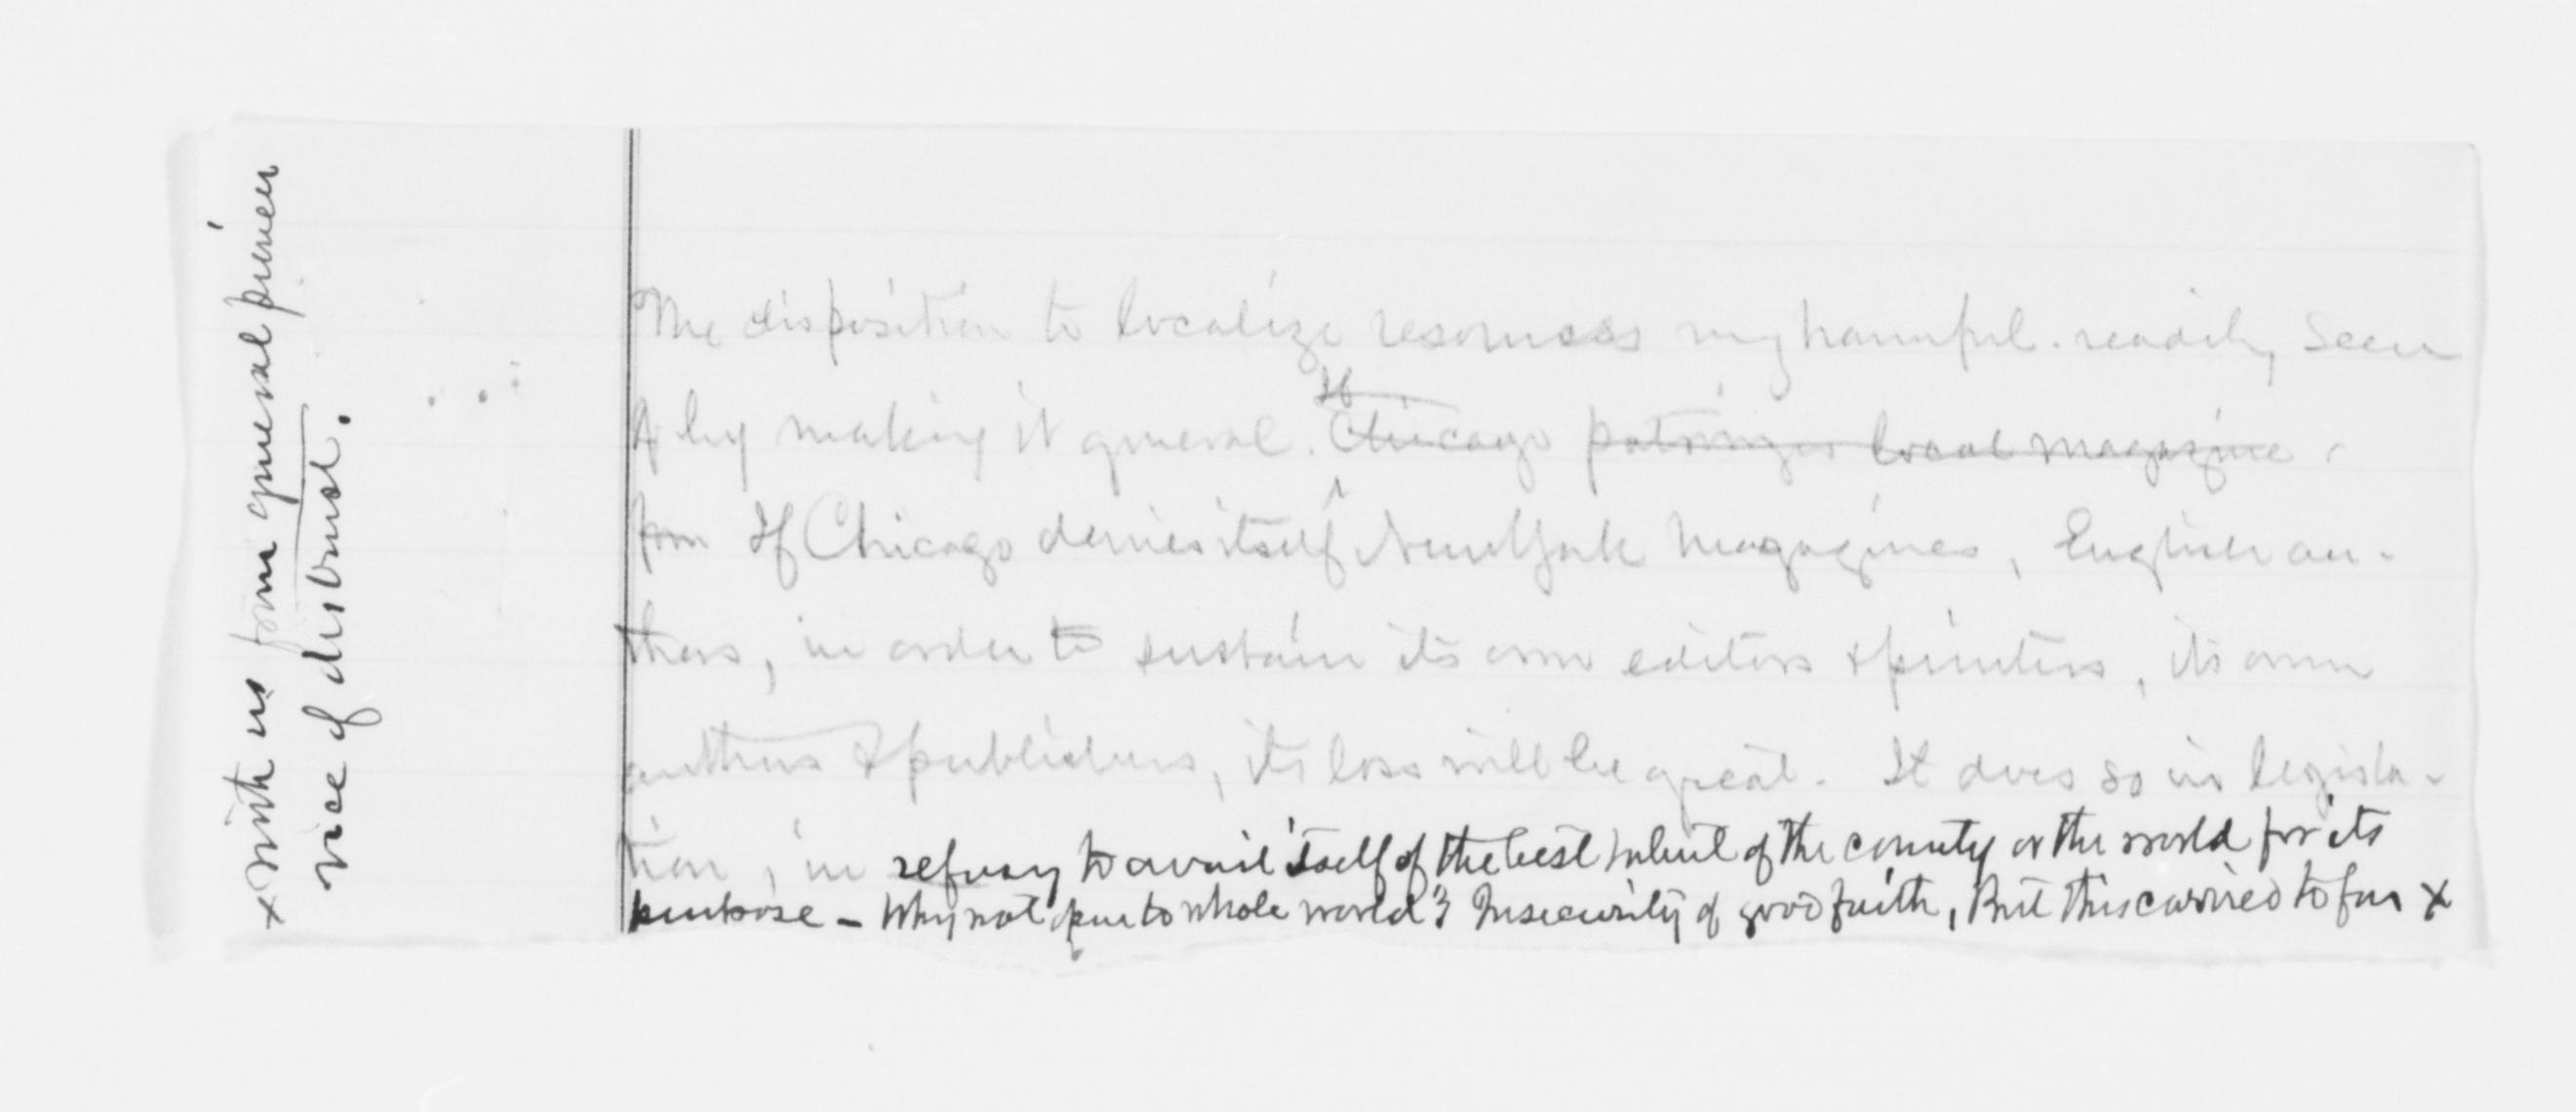 The disposition to localize resources very harmful. readily seen
by making it general. If Chicago patronizes local magazine.
from If Chicago denies itself New York Magazines, English au-
thors, in order to sustain its own editors & printers, its own
authors & publishers, its loss will be great. It does so in legisla-
tion, in refusing to avail itself of the best talent of the country or the world for its
purpose - Why not open to whole world? Insecurity of good faith, But this carried to far x
x with us from general
vice of distrust.